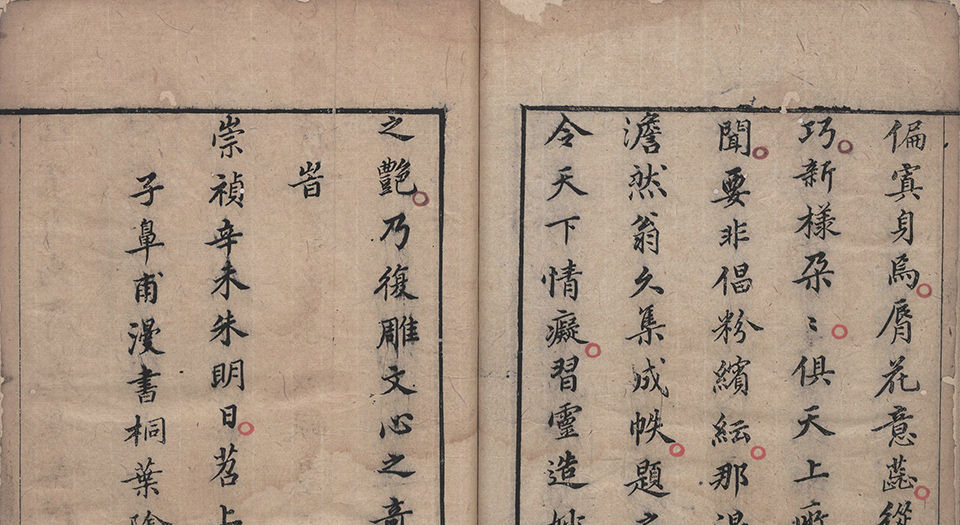 偏寘身焉。花意
巧。新樣朶〻。俱天上
聞。要非倡粉繽紜。那
澹然翁久集成帙。題之
令天下情癡。習靈造妙
之艷。乃復雕文心之竒
旹
崇禎辛未朱明日。苕上
子鼻甫漫書桐葉陰